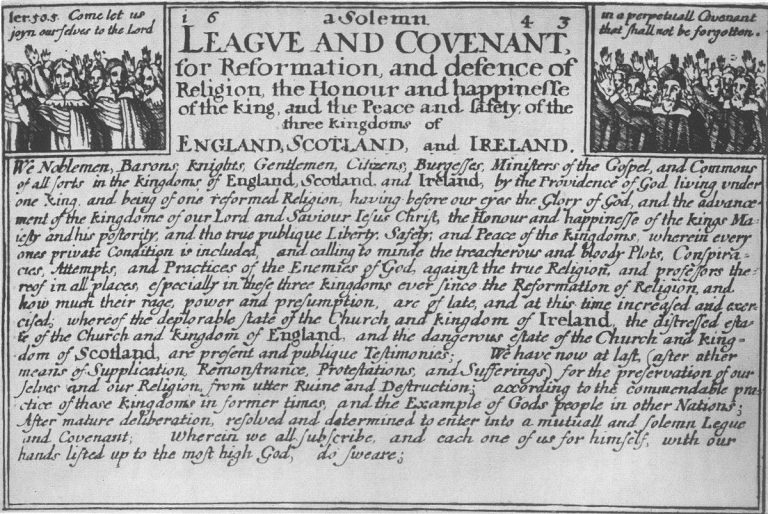 Ier. 50. 5. Come let us
joyn ourſelves to the Lord
16 a Solemn 43
LEAGVE AND COVENANT,
for Reformation, and defence of
Religion, the Honour and happineſſe
of the king, and the Peace and ſafety of the
three kingdoms of
ENGLAND, SCOTLAND, and IRELAND.
in a perpetuall Covenant
that ſhall not be forgotten.
We Noblemen, Barons, knights, Gentlemen, Citizens, Burgeſſes, Miniſters of the Goſpel, and Commons
of all ſorts in the kingdoms of England, Scotland, and Ireland, by the Providence of God living vnder
one king, and being of one reformed Religion, having before our eyes the Glory of God, and the advance-
ment of the kingdome of our Lord and Saviour Ieſus Chriſt, the Honour and happineſſe of the kings Ma-
ieſty and his poſterity, and the true publique Liberty, Safety, and Peace of the kingdoms, wherein every
ones private Condition is included, and calling to minde the treacherous and bloody Plots, Conſpira-
cies, Attempts, and Practices of the Enemies of God, againſt the true Religion, and profeſſors the-
reof in all places, eſpecially in theſe three kingdoms ever ſince the Reformation of Religion, and
how much their rage, power and preſumption, are of late, and at this time increaſed and exer-
ciſed; whereof the deplorable ſtate of the Church and kingdom of Ireland, the diſtreſſed eſta-
te of the Church and kingdom of England, and the dangerous eſtate of the Church and king-
dom of Scotland, are preſent and publique Teſtimonies; We have now at laſt, (after other
means of Supplication, Remonſtrance, Proteſtations, and Sufferings) for the preſervation of our
ſelves and our Religion, from utter Ruine and Deſtruction; according to the commendable pra-
ctice of thoſe kingdoms in former times, and the Example of Gods people in other Nations;
After mature deliberation, reſolved and determined to enter into a mutuall and ſolemn Legue
and Covenant; Wherein we all ſubſcribe, and each one of us for himſelf, with our
hands liſted up to the moſt high God, do ſweare;